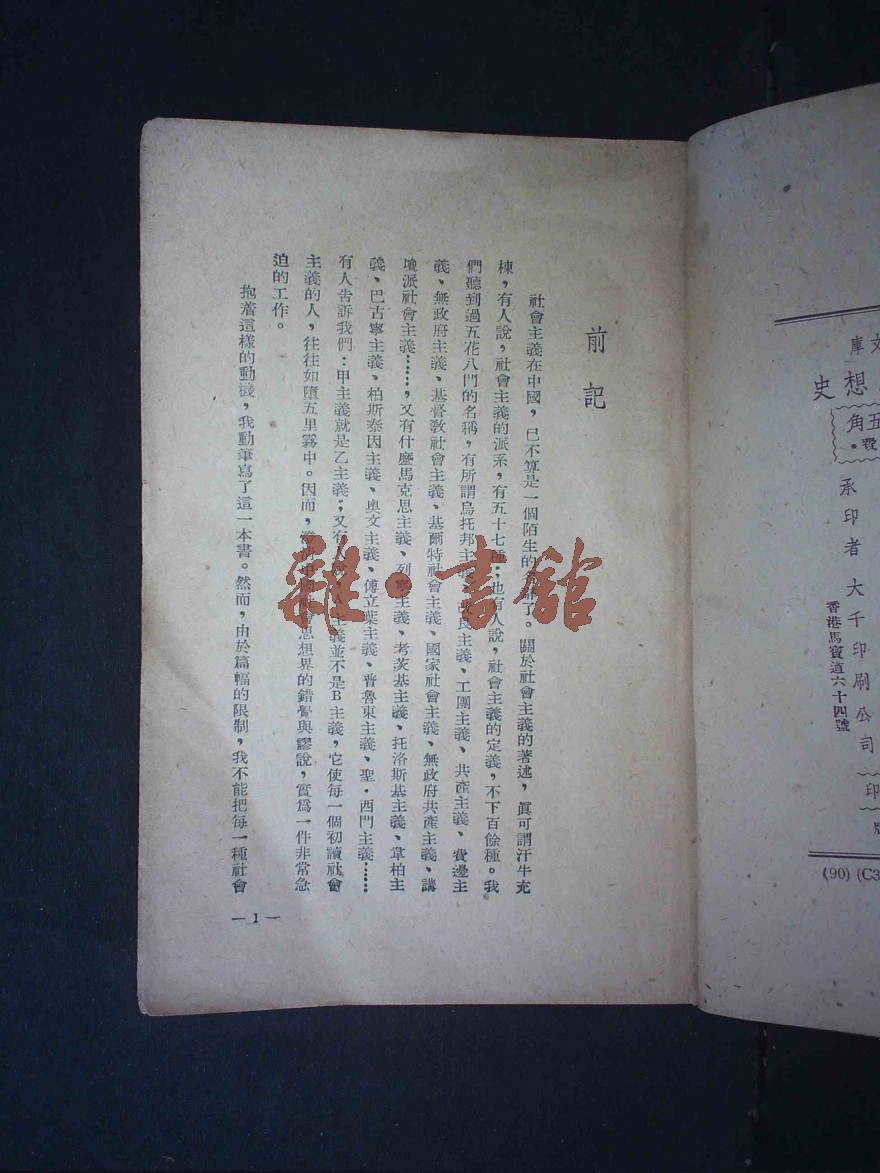 文庫
思想史
五角
費。
承印者 大千印刷公司
香港馬寶道六十四號
印
版
(90) (C3
前記
社會主義在中國，已不算是一個陌生的了。關於社會主義的著述，眞可謂汗牛充
棟，有人說，社會主義的派系，有五十七種；也有人說，社會主義的定義，不下百餘種。我
們聽到過五花八門的名稱，有所謂烏托邦主義、改良主義、工團主義、共產主義、費邊主
義、無政府主義、基督敎社會主義、基爾特社會主義、國家社會主義、無政府共產主義、講
壇派社會主義……，又有什麼馬克思主義、列寧主義、考茨基主義、托洛斯基主義、韋柏主
義、巴古寧主義、柏斯泰因主義、奧文主義、傅立葉主義、普魯東主義、聖・西門主義……
有人告訴我們：甲主義就是乙主義；又有人說，A主義並不是B主義，它使每一個初讀社會
主義的人，往往如墮五里霧中。因而，思想界的錯覺與謬說，實爲一件非常急
迫的工作。
抱着這樣的動機，我動筆寫了這一本書。然而，由於篇幅的限制，我不能把每一種社會
— 1 —
雜・書館